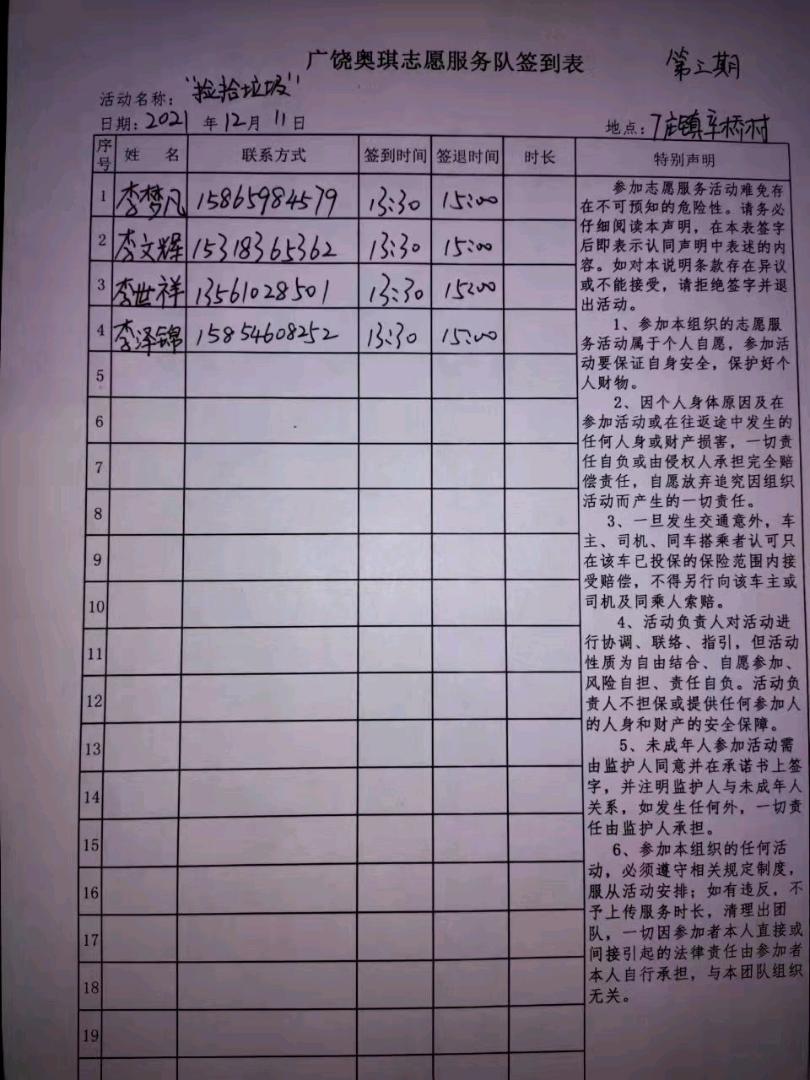 广饶奥琪志愿服务队签到表
第三期
活动名称："捡拾垃圾"
日期：2021 年 12月 11日
地点：丁庄镇辛桥村
序号 姓 名 联系方式 签到时间 签退时间 时长 特别声明
1 李梦凡 15865984579 13:30 15:00
2 李文辉 15318365362 13:30 15:00
3 李世祥 13561028501 13:30 15:00
4 李泽锦 15854608252 13:30 15:00
5
6
7
8
9
10
11
12
13
14
15
16
17
18
19
参加志愿服务活动难免存
在不可预知的危险性。请务必
仔细阅读本声明，在本表签字
后即表示认同声明中表述的内
容。如对本说明条款存在异议
或不能接受，请拒绝签字并退
出活动。
1、参加本组织的志愿服
务活动属于个人自愿，参加活
动要保证自身安全，保护好个
人财物。
2、因个人身体原因及在
参加活动或在往返途中发生的
任何人身或财产损害，一切责
任自负或由侵权人承担完全赔
偿责任，自愿放弃追究因组织
活动而产生的一切责任。
3、一旦发生交通意外，车
主、司机、同车搭乘者认可只
在该车已投保的保险范围内接
受赔偿，不得另行向该车主或
司机及同乘人索赔。
4、活动负责人对活动进
行协调、联络、指引，但活动
性质为自由结合、自愿参加、
风险自担、责任自负。活动负
责人不担保或提供任何参加人
的人身和财产的安全保障。
5、未成年人参加活动需
由监护人同意并在承诺书上签
字，并注明监护人与未成年人
关系，如发生任何外，一切责
任由监护人承担。
6、参加本组织的任何活
动，必须遵守相关规定制度，
服从活动安排；如有违反，不
予上传服务时长，清理出团
队，一切因参加者本人直接或
间接引起的法律责任由参加者
本人自行承担，与本团队组织
无关。